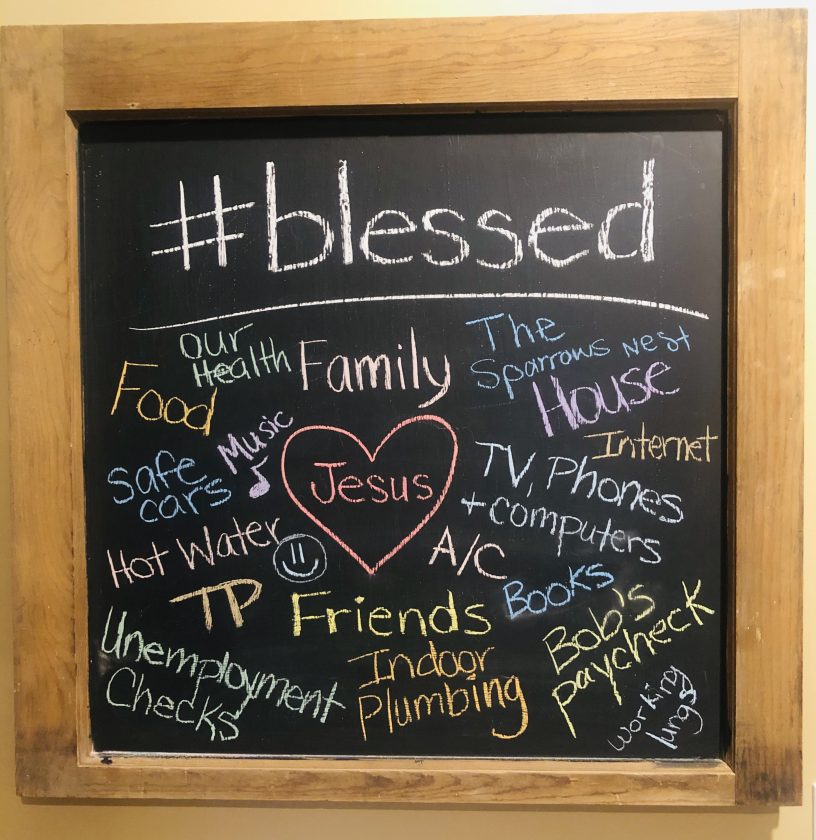 #blessed
our
Health
Family
The
Sparrows Nest
Food
House
Music
Internet
Safe
cars
Jesus
TV, Phones
+computers
Hot Water
A/C
TP
Friends
Books
Bob's
paycheck
Unemployment
Checks
Indoor
Plumbing
working
lungs